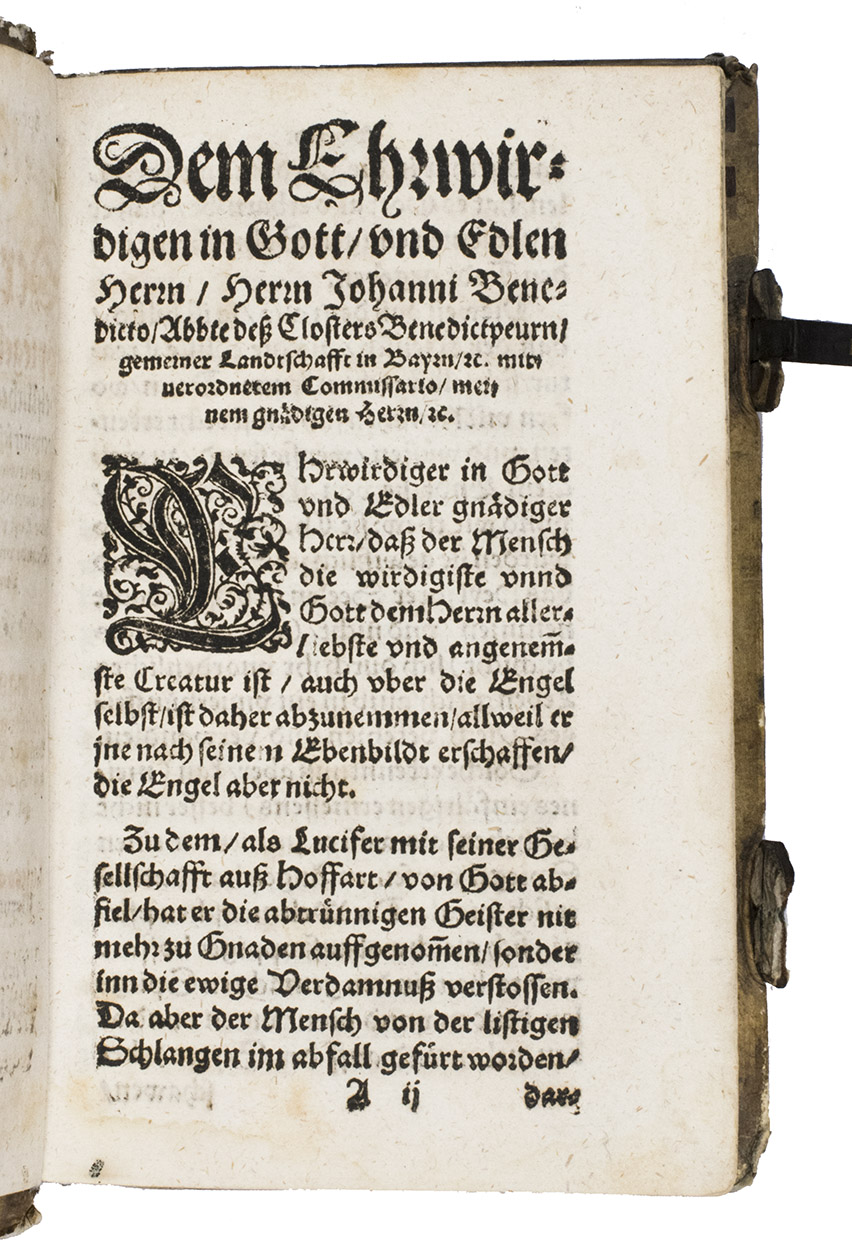 Dem Ehrwir-
digen in Gott/ vnd Edlen
Herrn / Herrn Johanni Bene-
dicto/Abbte deß Closters Benedictpeurn/
gemeiner Landtschafft in Bayrn/ꝛc. mit-
verordnetem Commissario/ mei-
nem gnädigen Herrn/ꝛc.
EHrwirdiger in Gott
vnd Edler gnädiger
Herr/daß der Mensch
die wirdigiste vnnd
Gott dem Herrn aller-
liebste vnd angenem̃-
ste Creatur ist / auch vber die Engel
selbst/ist daher abzunemmen/allweil er
jne nach seinen Ebenbildt erschaffen/
die Engel aber nicht.
Zu dem/als Lucifer mit seiner Ge-
sellschafft auß Hoffart/von Gott ab-
fiel/hat er die abtrünnigen Geister nit
mehr zu Gnaden auffgenom̃en/sonder
inn die ewige Verdamnuß verstossen.
Da aber der Mensch von der listigen
Schlangen im abfall gefürt worden/
A ij dar-